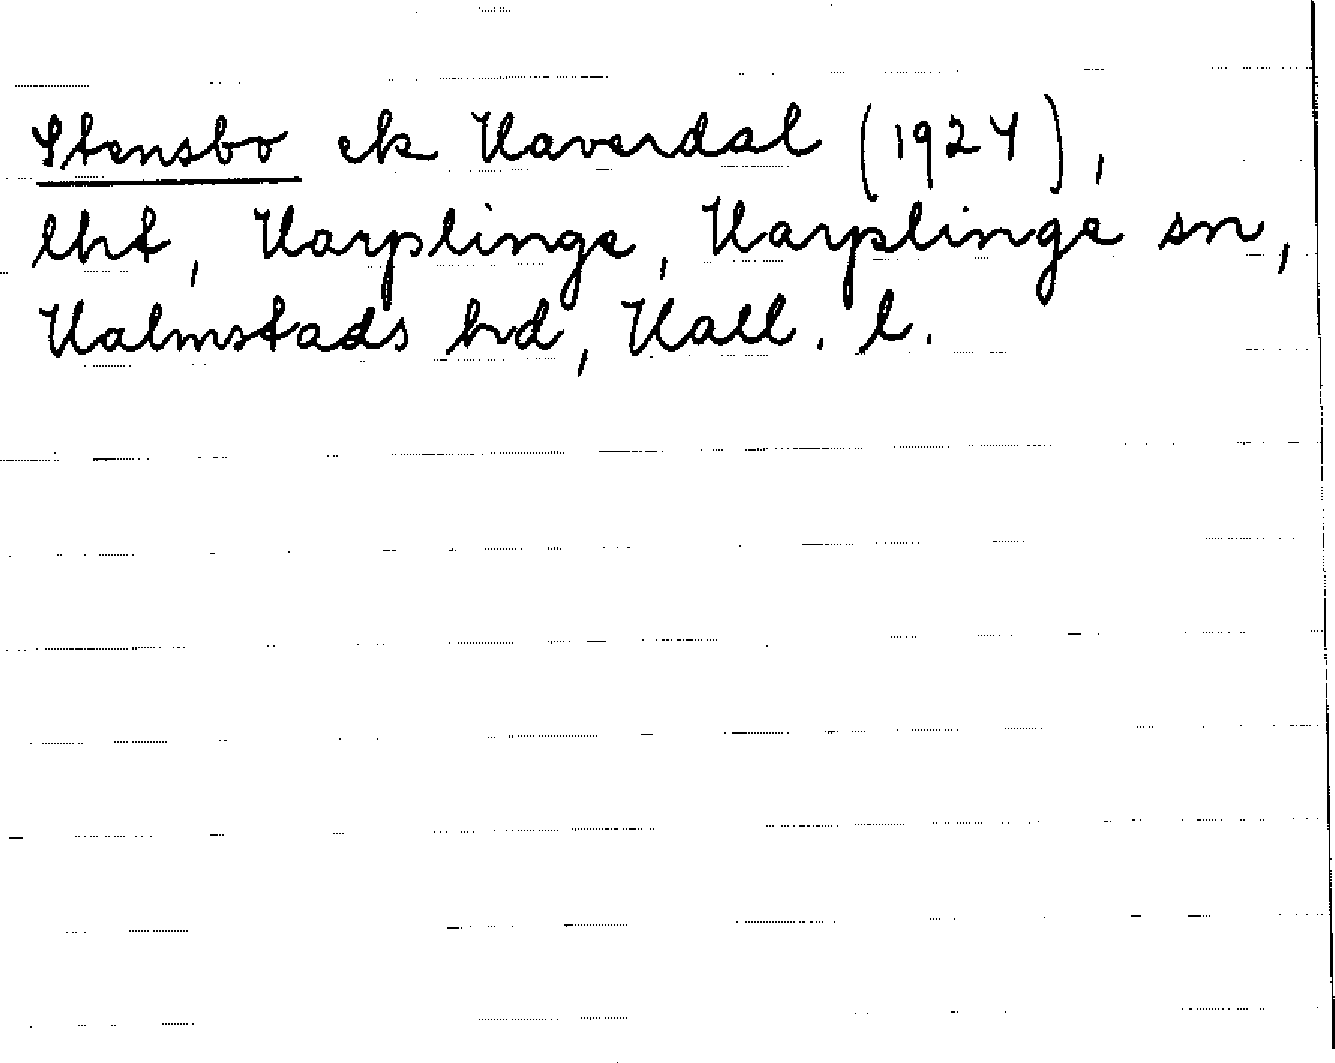 Stensbo ek Haverdal (1924),
lht, Harplinge, Harplinge sn,
Halmstads hd, Hall. l.